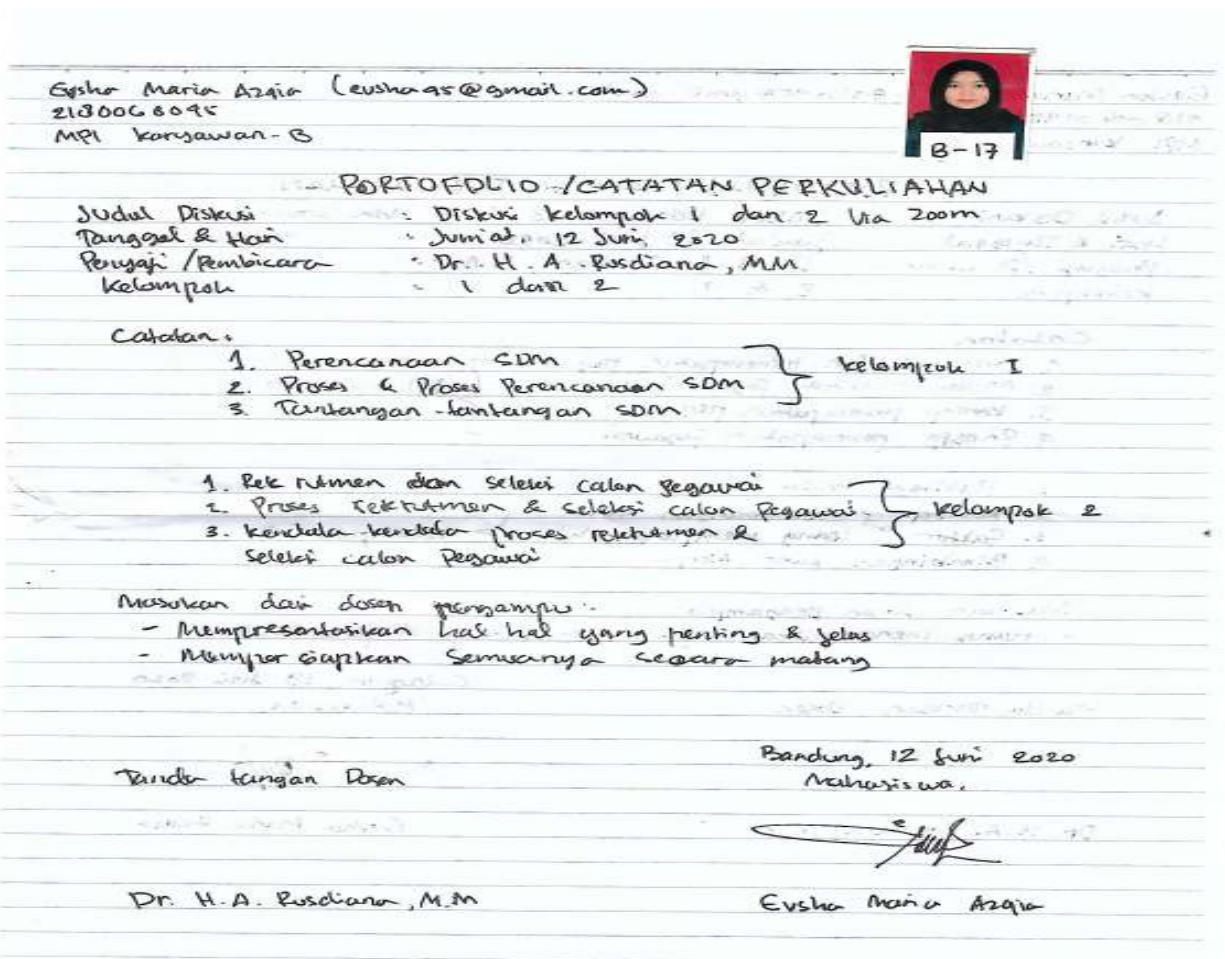 Evsha Maria Azqia (evsha95@gmail.com)
2180060095
MPI karyawan-B
B-17
PORTOFOLIO /CATATAN PERKULIAHAN
Judul Diskusi : Diskusi kelompok 1 dan 2 Via Zoom
Tanggal & Hari : Jum'at, 12 Juni 2020
Penyaji /Pembicara : Dr. H. A. Rusdiana, MM
Kelompok : 1 dan 2
Catatan:
1. Perencanaan SDM
2. Proses & Proses Perencanaan SDM
3. Tantangan-tantangan SDM
kelompok I
1. Rekrutmen dan Seleksi calon pegawai
2. Proses rekrutmen & seleksi calon Pegawai
3. kendala-kendala proses rekrutmen &
seleksi calon Pegawai
kelompok 2
Masukan dari dosen pengampu:
- Mempresentasikan hal hal yang penting & jelas
- Mempersiapkan Semuanya secara matang
Bandung, 12 Juni 2020
Tanda tangan Dosen
Mahasiswa,
Dr. H. A. Rusdiana, M.M
Evsha Maria Azqia